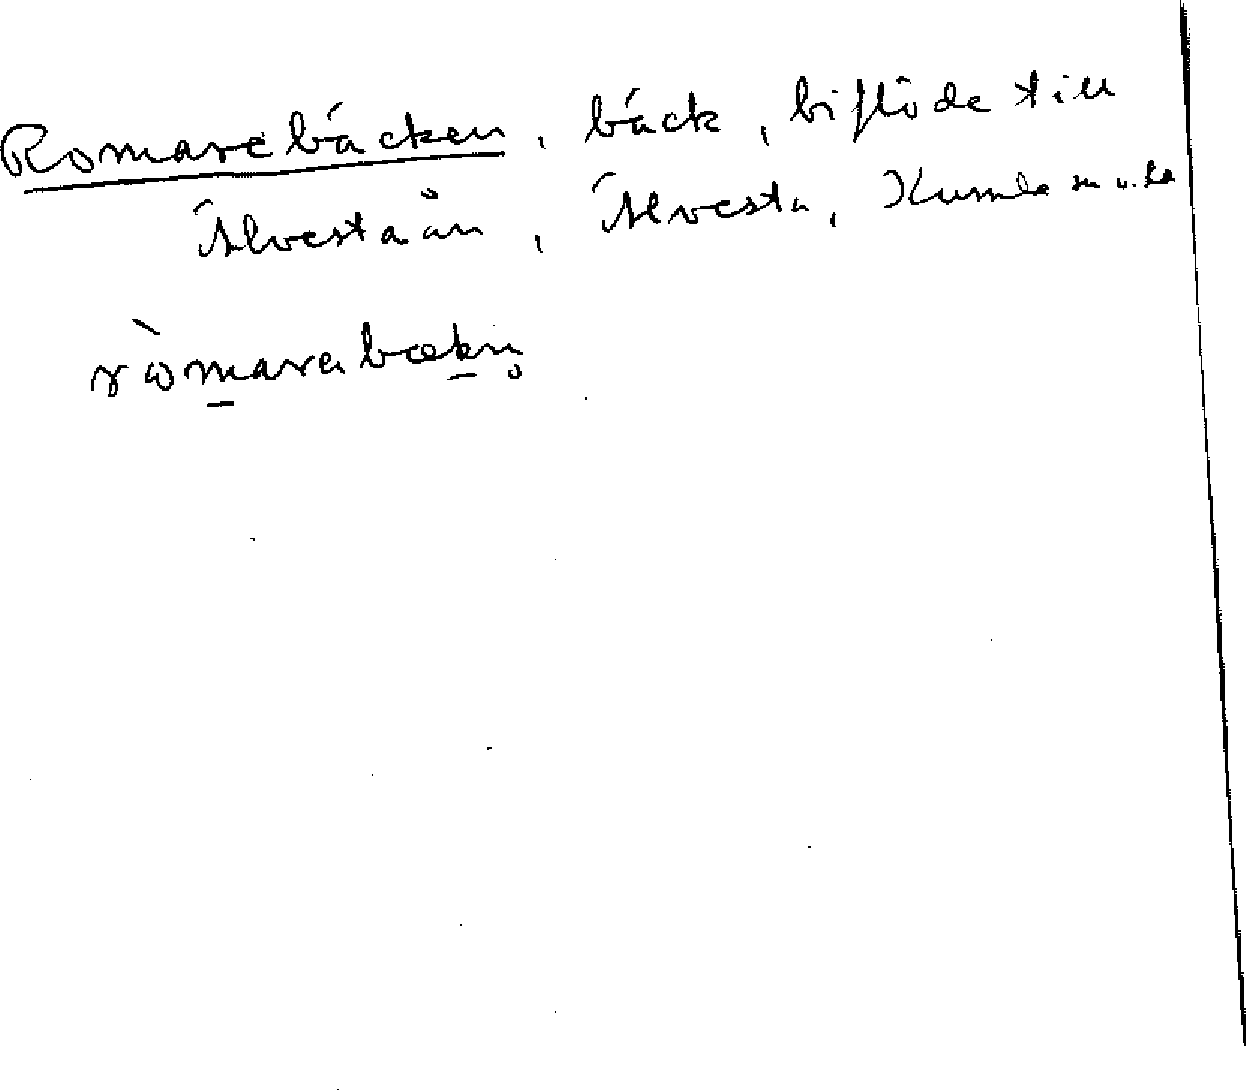 Romarebäcken, bäck, biflöde till
Älvestaån, Älvesta, Kumla
ròmarabækn̥